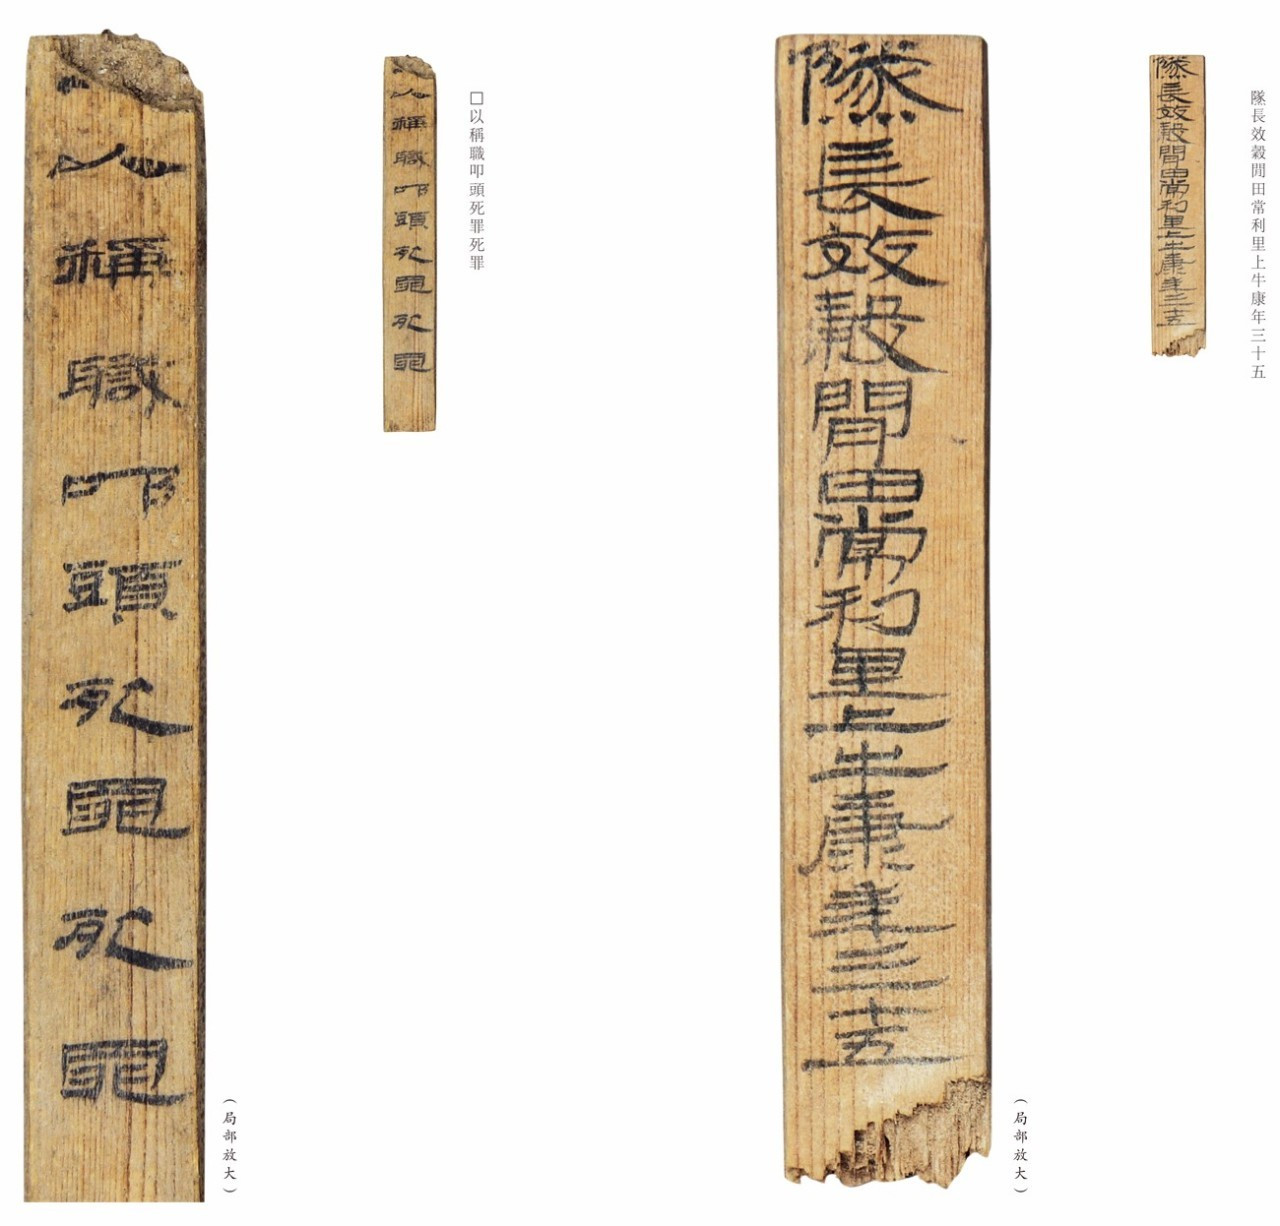 隧長效穀閒田常利里上牛康年三十五
隧長效穀閒田常利里上牛康年三十五
(局部放大)
□以稱職叩頭死罪死罪
以稱職叩頭死罪死罪
以稱職叩頭死罪死罪
(局部放大)